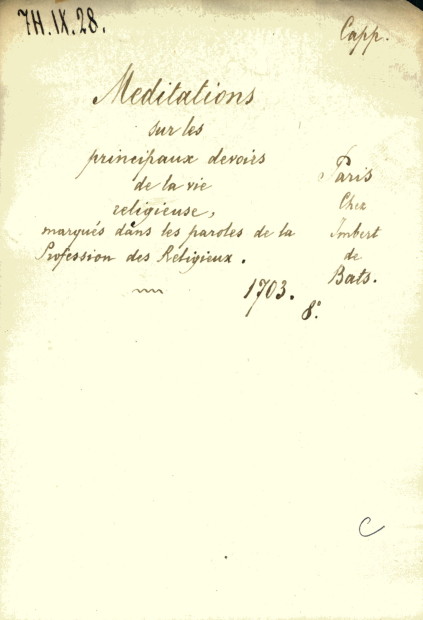 7H.IX.28.
Capp.
Meditations
sur les
principaux devoirs
de la vie
religieuse,
marqués dans les paroles de la
Profession des Réligieux.
Paris
Chez
Imbert
de
Bats.
1703.
8°.
C